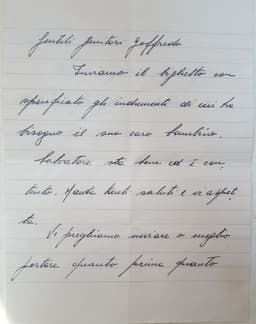 Gentili Genitori Goffredo
Inviamo il biglietto con
specificato gli indumenti di cui ha
bisogno il suo caro bambino.
Salvatore sta bene ed è con,
tento. Manda tanti saluti e vi aspet,
ta.
Vi preghiamo inviare o meglio
portare quanto prima quanto